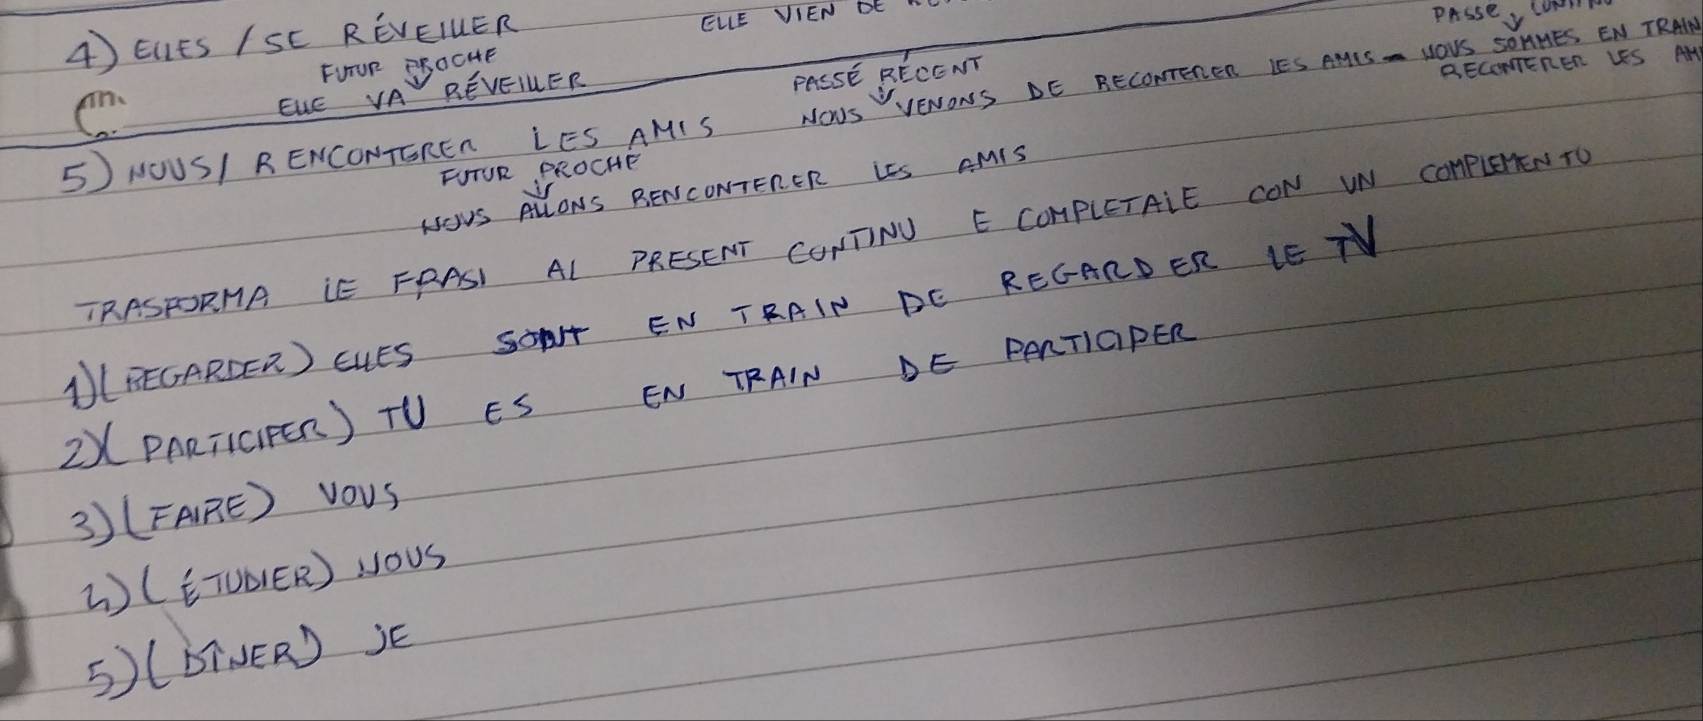 4) ELLES / SE RÉVEILLER
ELLE VIEN DE
FUTUR PROCHE
ELLE VA RÉVEILLER
PASSE
5) NOUS / RENCONTERER LES AMIS
PASSÉ RÉCENT
NOUS VENONS DE RECONTERER LES AMIS NOUS SOMMES EN TRAIN
RECONTERER LES AMI
FUTUR PROCHE
NOUS ALLONS RENCONTERER LES AMIS
TRASFORMA LE FRASI AL PRESENT CONTINU E COMPLETALE CON UN COMPLEMENTO
1) (REGARDER) ELLES SONT EN TRAIN DE REGARDER LE TV
2) (PARTICIPER) TU ES EN TRAIN DE PARTICIPER
3) (FAIRE) VOUS
4) (ÉTUDIER) NOUS
5) (DÎNER) JE